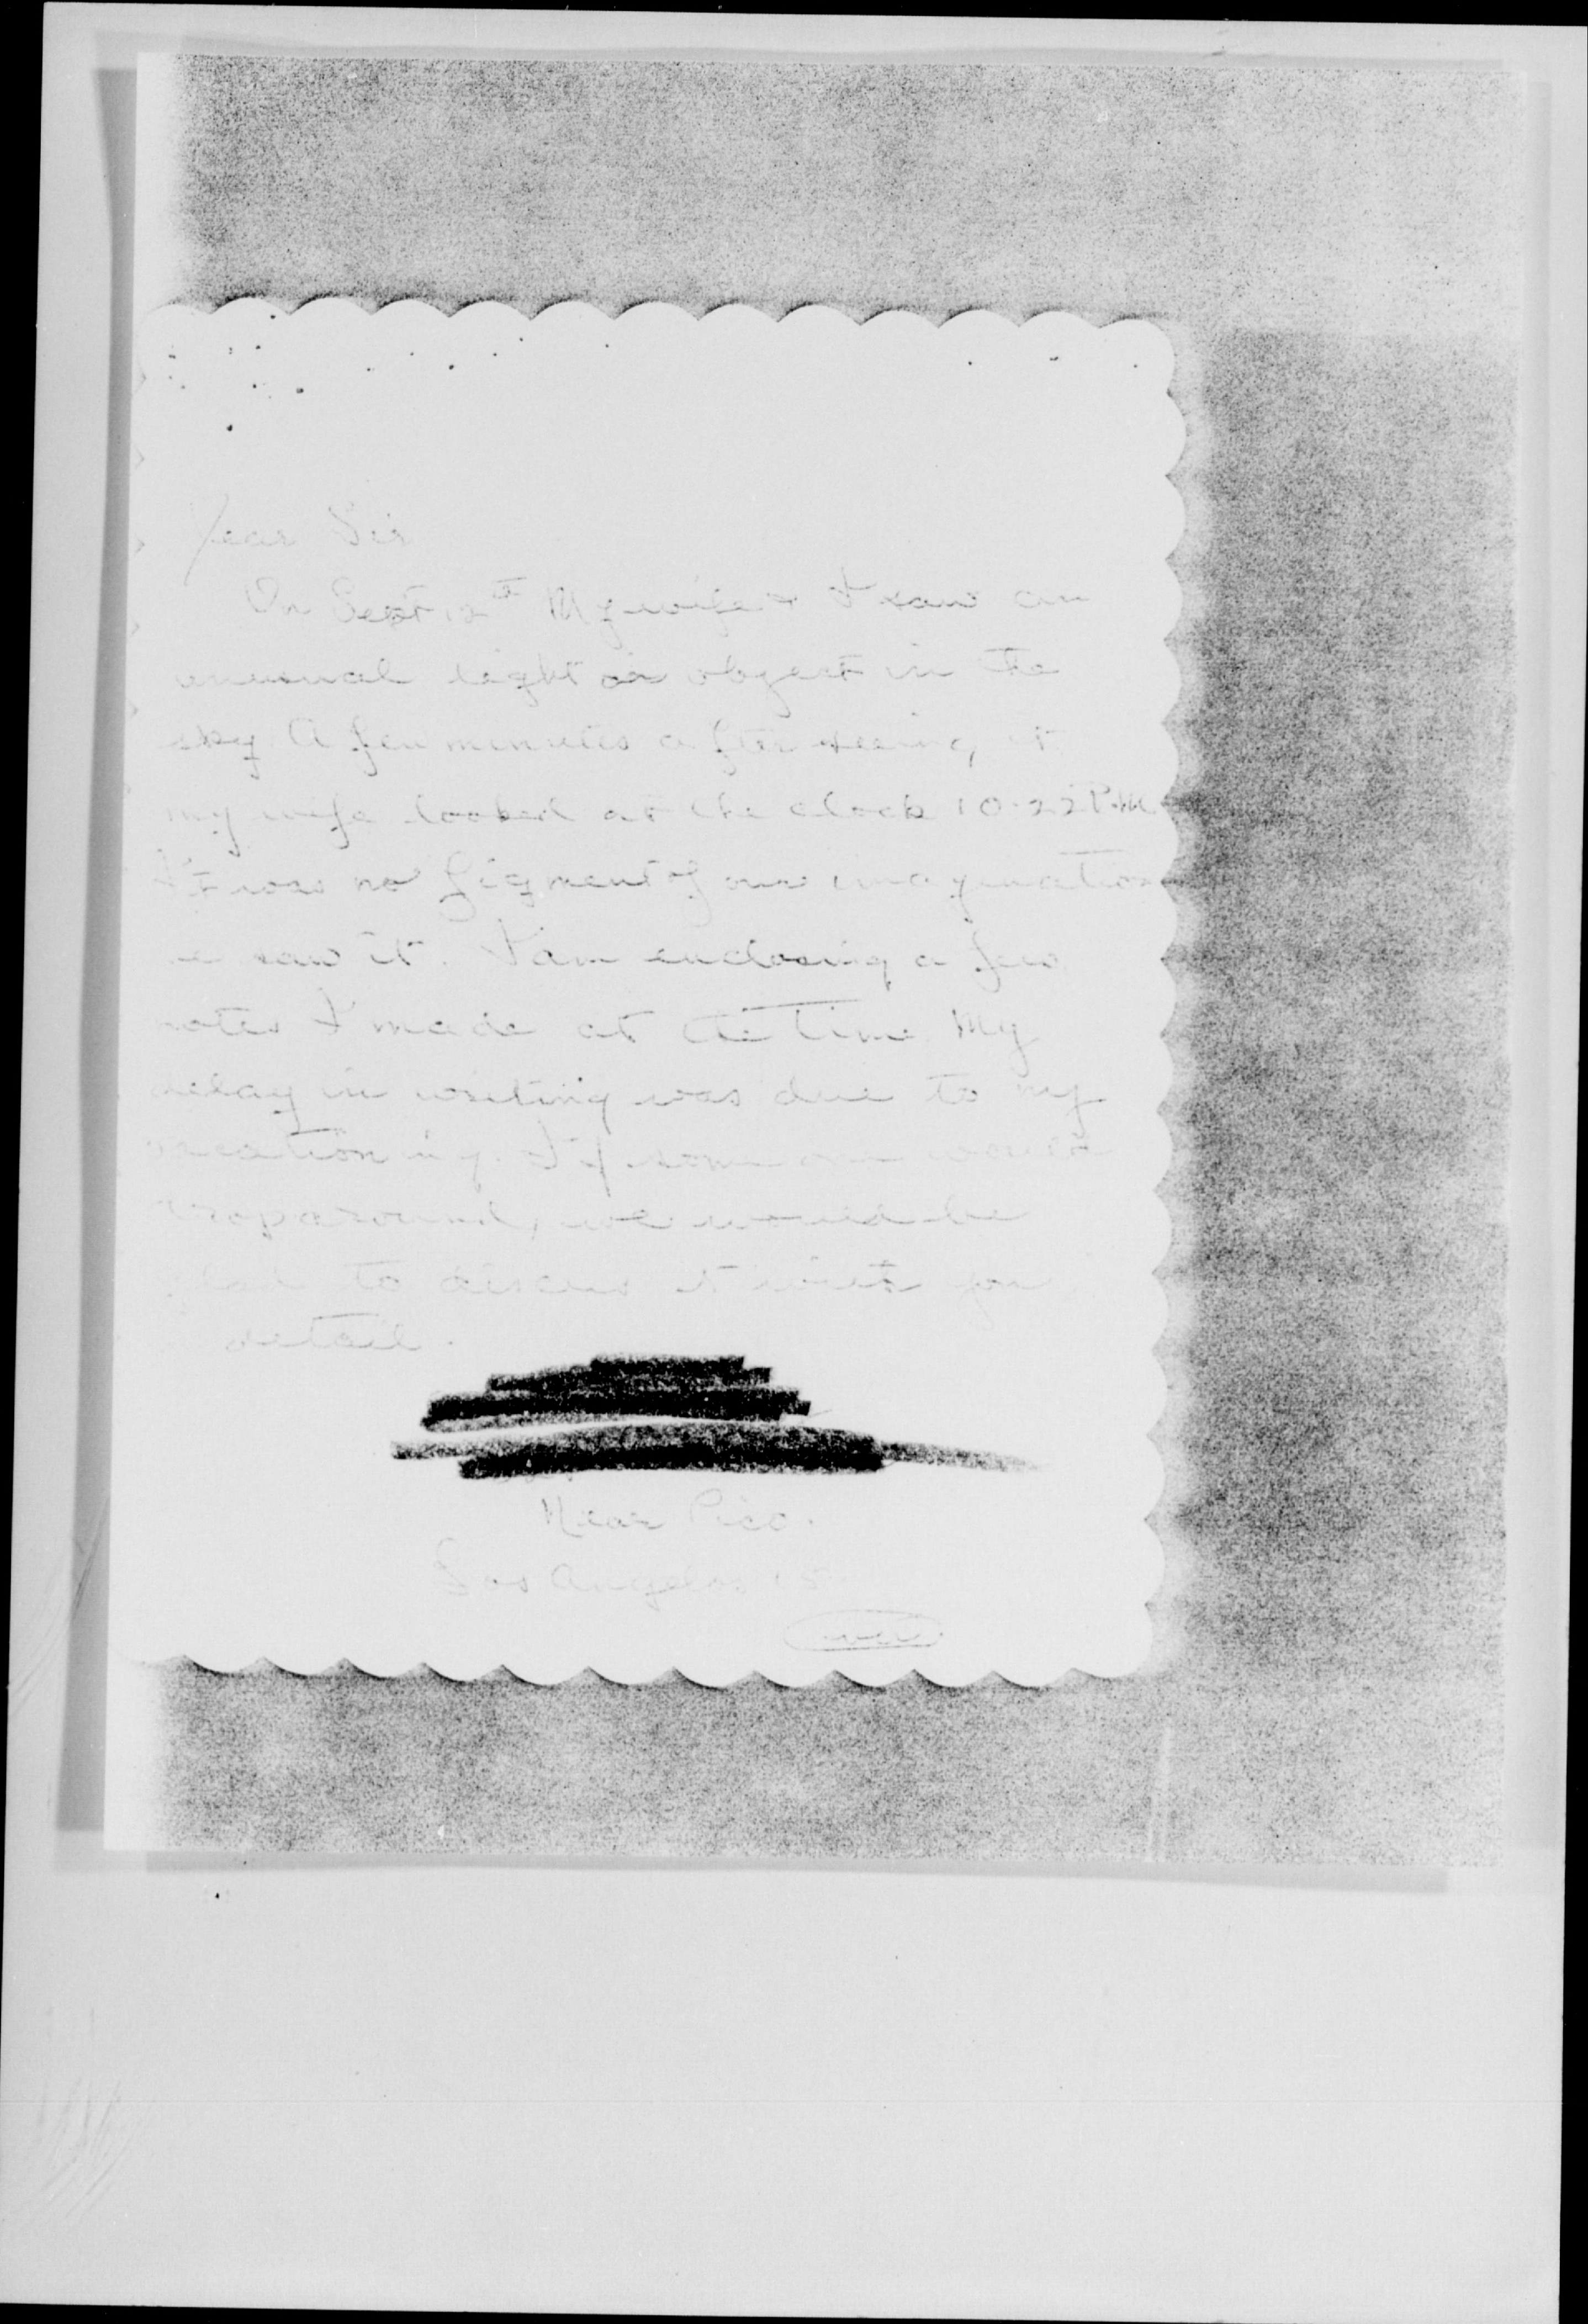 Dear Sir
On Sept 12th My wife & I saw an
unusual light or object in the
sky. A few minutes after seeing it
my wife looked at the clock 10.22 P.M
It was no figment of our imagination
we saw it. I am enclosing a few
notes I made at the time. My
delay in writing was due to my
vacationing. If some one would
drop around, we would be
glad to discuss it with you
in detail.
Near Pico.
Los Angeles 15
over